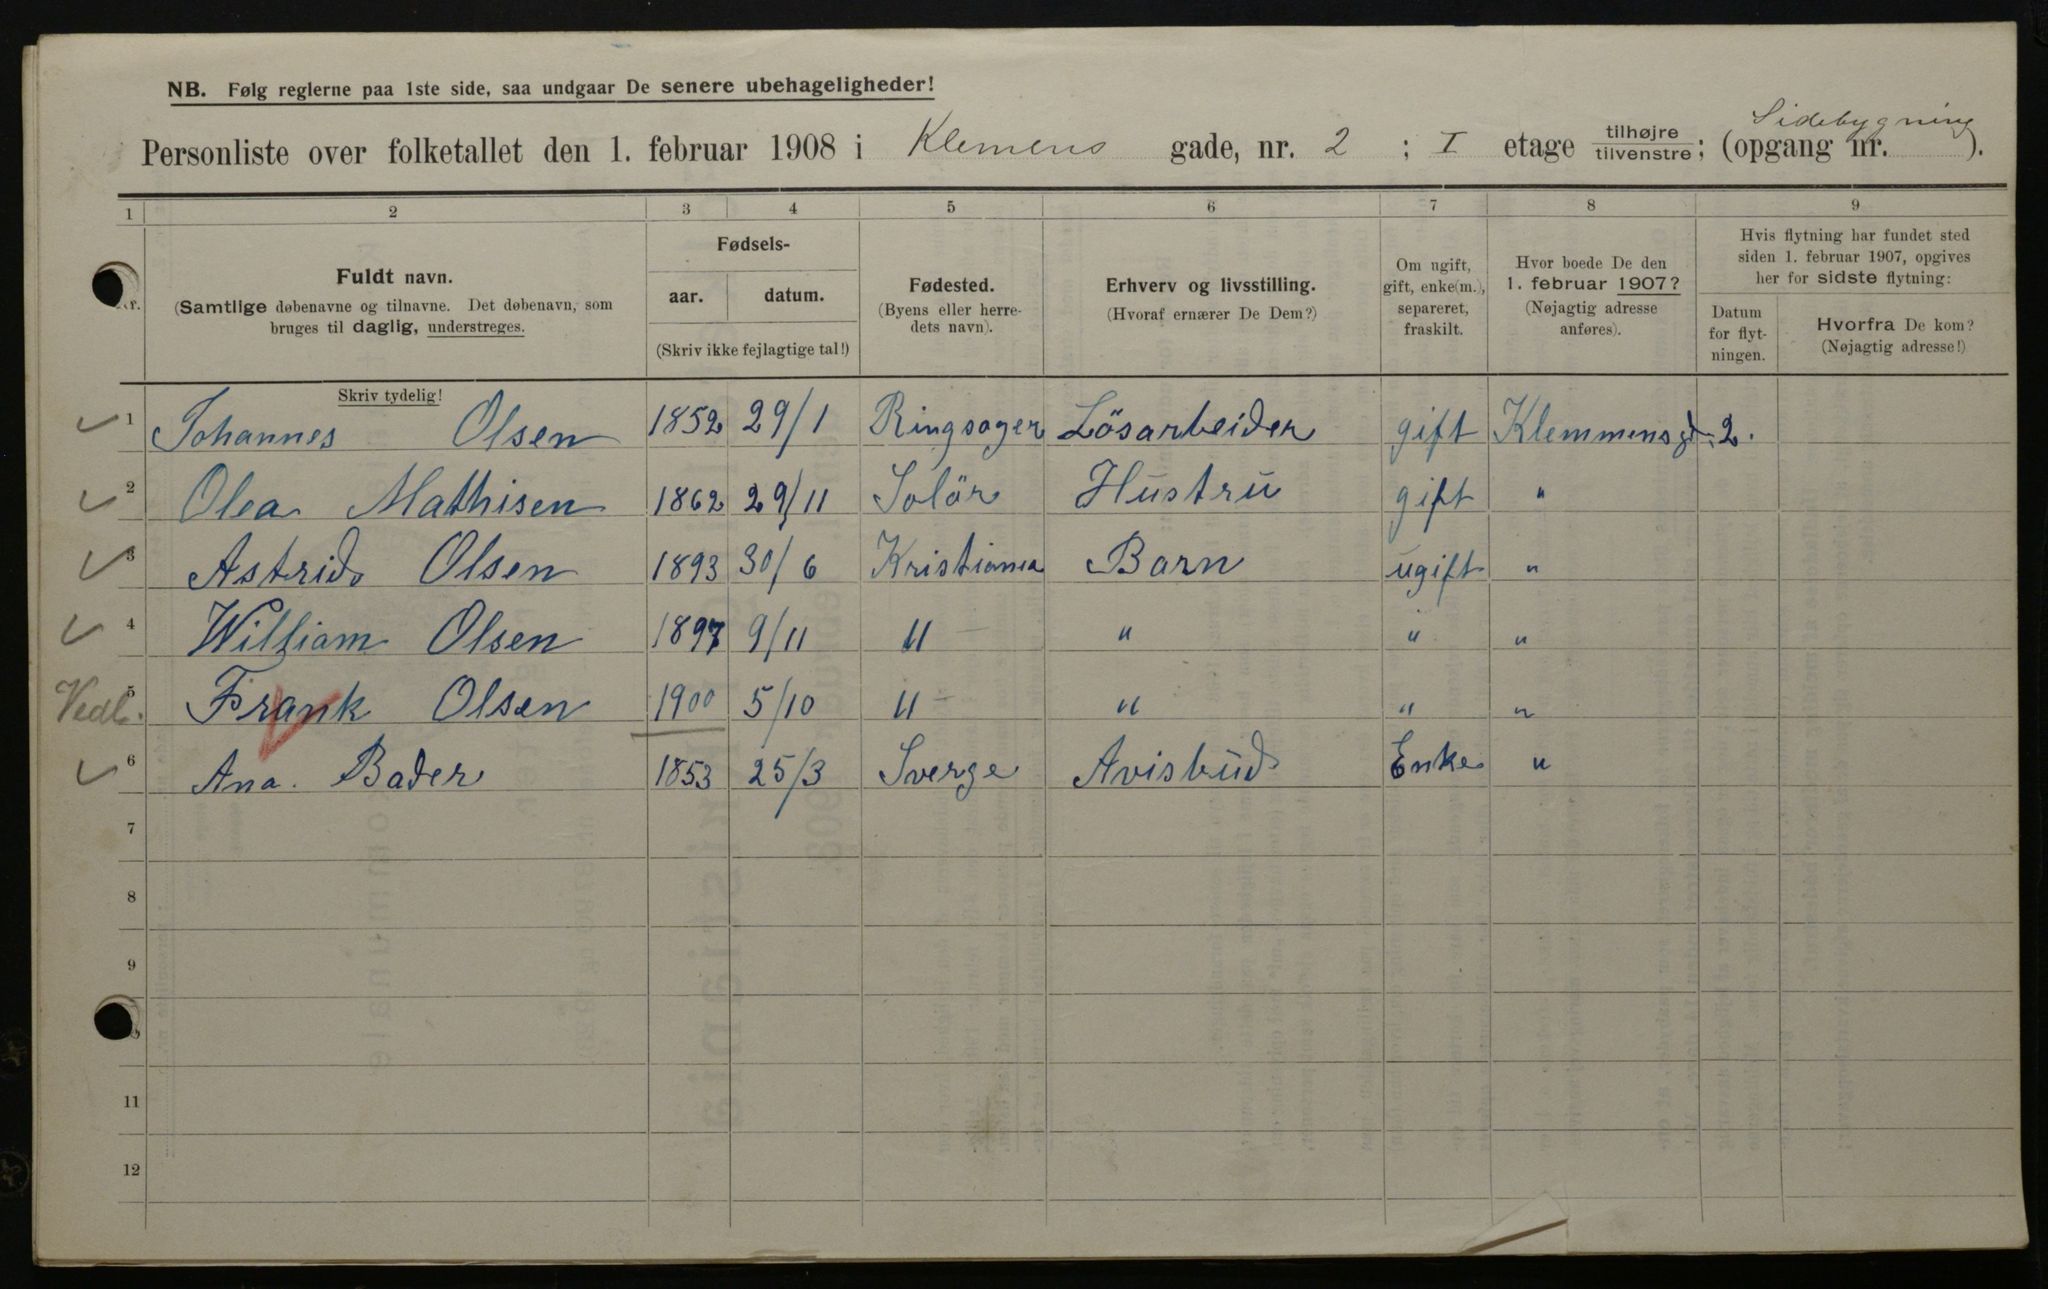 NB. Følg reglerne paa 1ste side, saa undgaar De senere ubehageligheder!
Sidebygning
Personliste over folketallet den 1. februar 1908 i Klemens gade, nr. 2 ; I etage tilhøjre/tilvenstre; (opgang nr. ).
1 2 3 4 5 6 7 8 9
Fuldt navn.
(Samtlige døbenavne og tilnavne. Det døbenavn, som
bruges til daglig, understreges.
Skriv tydelig!
Fødsels-
aar. datum.
(Skriv ikke fejlagtige tal!)
Fødested.
(Byens eller herre-
dets navn).
Erhverv og livsstilling.
(Hvoraf ernærer De Dem?)
Om ugift,
gift, enke(m.),
separeret,
fraskilt.
Hvor boede De den
1. februar 1907?
(Nøjagtig adresse
anføres).
Hvis flytning har fundet sted
siden 1. februar 1907, opgives
her for sidste flytning:
Datum
for flyt-
ningen.
Hvorfra De kom?
(Nøjagtig adresse!)
✓ 1 Johannes Olsen 1852 29/1 Ringsager Lösarbeider gift Klemmensgd. 2.
✓ 2 Olea Mathisen 1862 29/11 Solör Hustru gift "
✓ 3 Astrid Olsen 1893 30/6 Kristiania Barn ugift "
✓ 4 William Olsen 1897 9/11 " — " " "
Vedl. 5 Frank Olsen 1900 5/10 " — " " "
✓ 6 Ana. Bader 1853 25/3 Sverge Avisbud Enke "
7
8
9
11
12